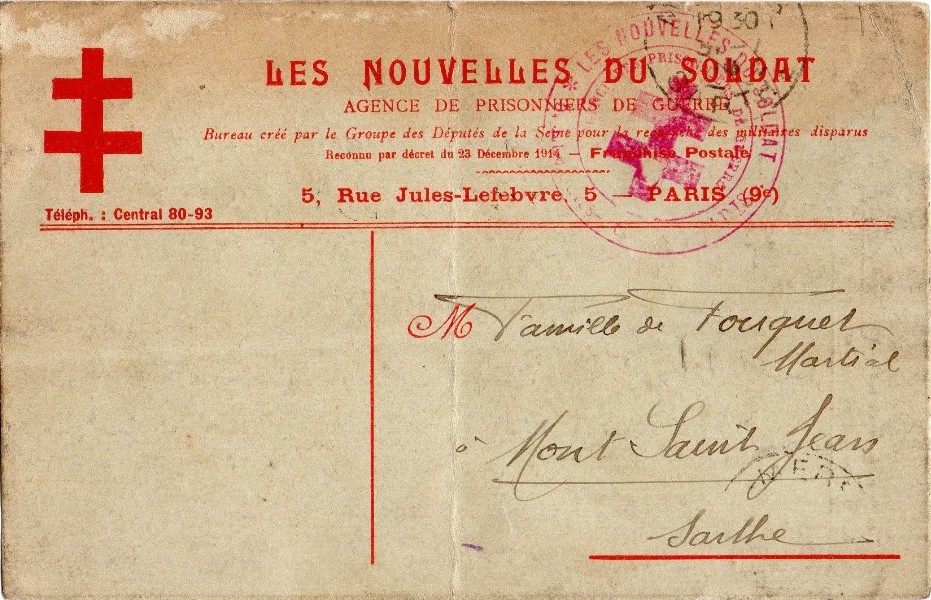 LES NOUVELLES DU SOLDAT
AGENCE DE PRISONNIERS DE GUERRE
Bureau créé par le Groupe des Députés de la Seine pour la recherche des militaires disparus
Reconnu par décret du 23 Décembre 1914 — Franchise Postale
5, Rue Jules-Lefebvre, 5 — PARIS (9e)
Téléph. : Central 80-93
LES NOUVELLES DU SOLDAT
19 30
M Famille de Fouquet
Martial
à Mont Saint Jean
Sarthe